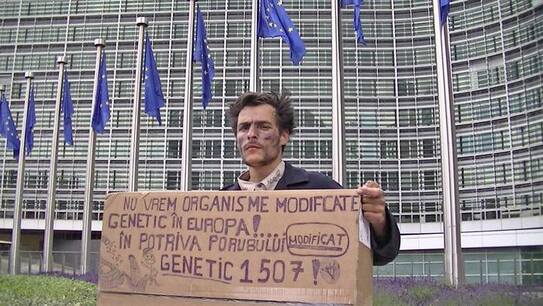 NU VREM ORGANISME MODIFCATE
GENETIC ÎN EUROPA!
ÎN POTRIVA PORUBULUI MODIFICAT
GENETIC 1507!